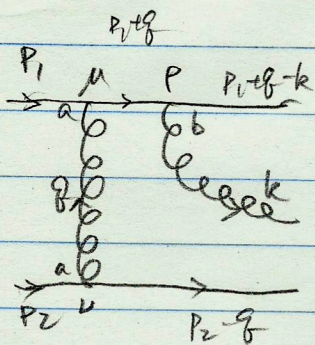 P₁+q
P₁ μ ρ P₁+q-k
a b
q k
a
P₂ ν P₂-q